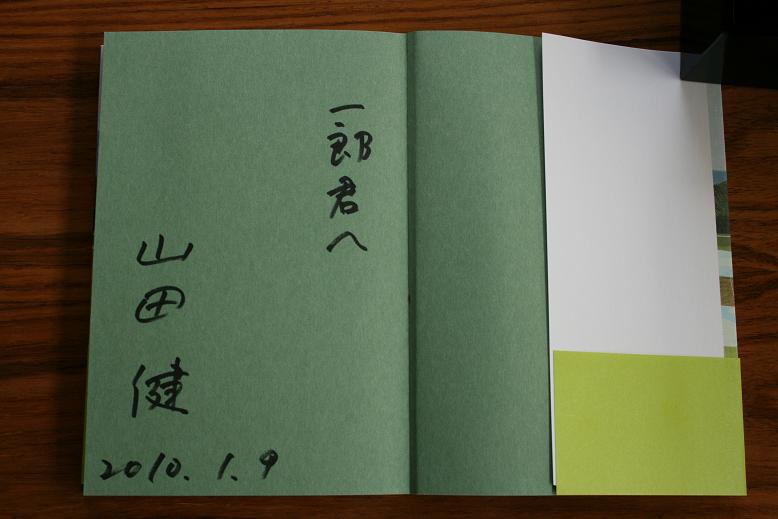 一郎君へ
山田 健
2010.1.9